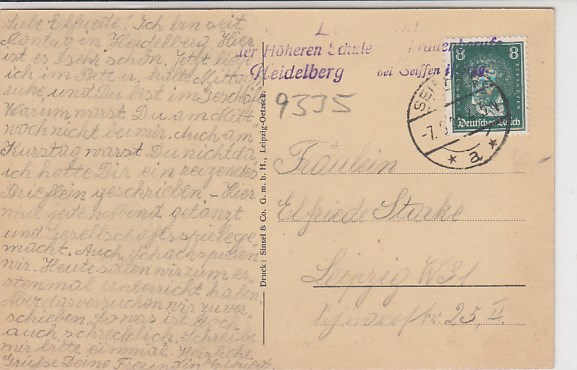 Liebe Elfriede! Ich bin seit
Montag in Heidelberg. Hier
ist es sehr schön. Jetzt
ich im Bett u. halte Mittags
ruhe, und Du bist im Geschäft
Warum warst Du am Mitt
woch nicht bei mir. Auch am
Kurstag warst Du nicht da
ich hatte Dir ein reizendes
Brieflein geschrieben. - Hier
wird jeden Abend getanzt
und Gesellschaftsspiele ge
macht. Auch Schach spielen
wir. Heute sollen wir zum er
stenmal Unterricht haben.
Aber das versuchen wir zu ver
schieben. So was ist doch
auch schrecklich. Schreibe
mir bitte einmal. Herzliche
Grüße Deine Freundin
Druck: Sinsel & Co. G. m. b. H., Leipzig-Oetzsch.
der Höheren Schule
Heidelberg bei Seiffen
9335
8 8
Deutsches Reich
SEI
-7.
* a *
Fräulein
Elfriede Starke
Leipzig W31
25, II